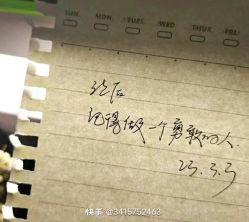 SUN. MON. TUES. WED. THUR. FRI.
往后
记得做一个勇敢的人
23.3.3
快手 @3415752463